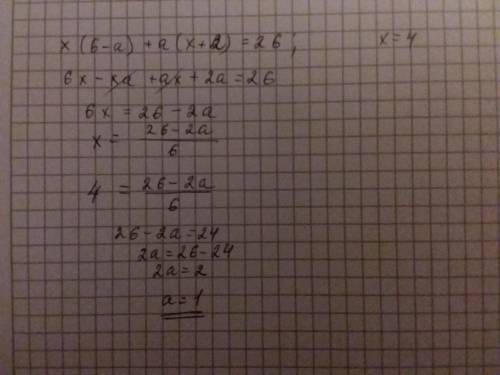 x(6-a)+a(x+2)=26; x=4
6x-xa+ax+2a=26
6x=26-2a
x=\frac{26-2a}{6}
4=\frac{26-2a}{6}
26-2a=24
2a=26-24
2a=2
a=1